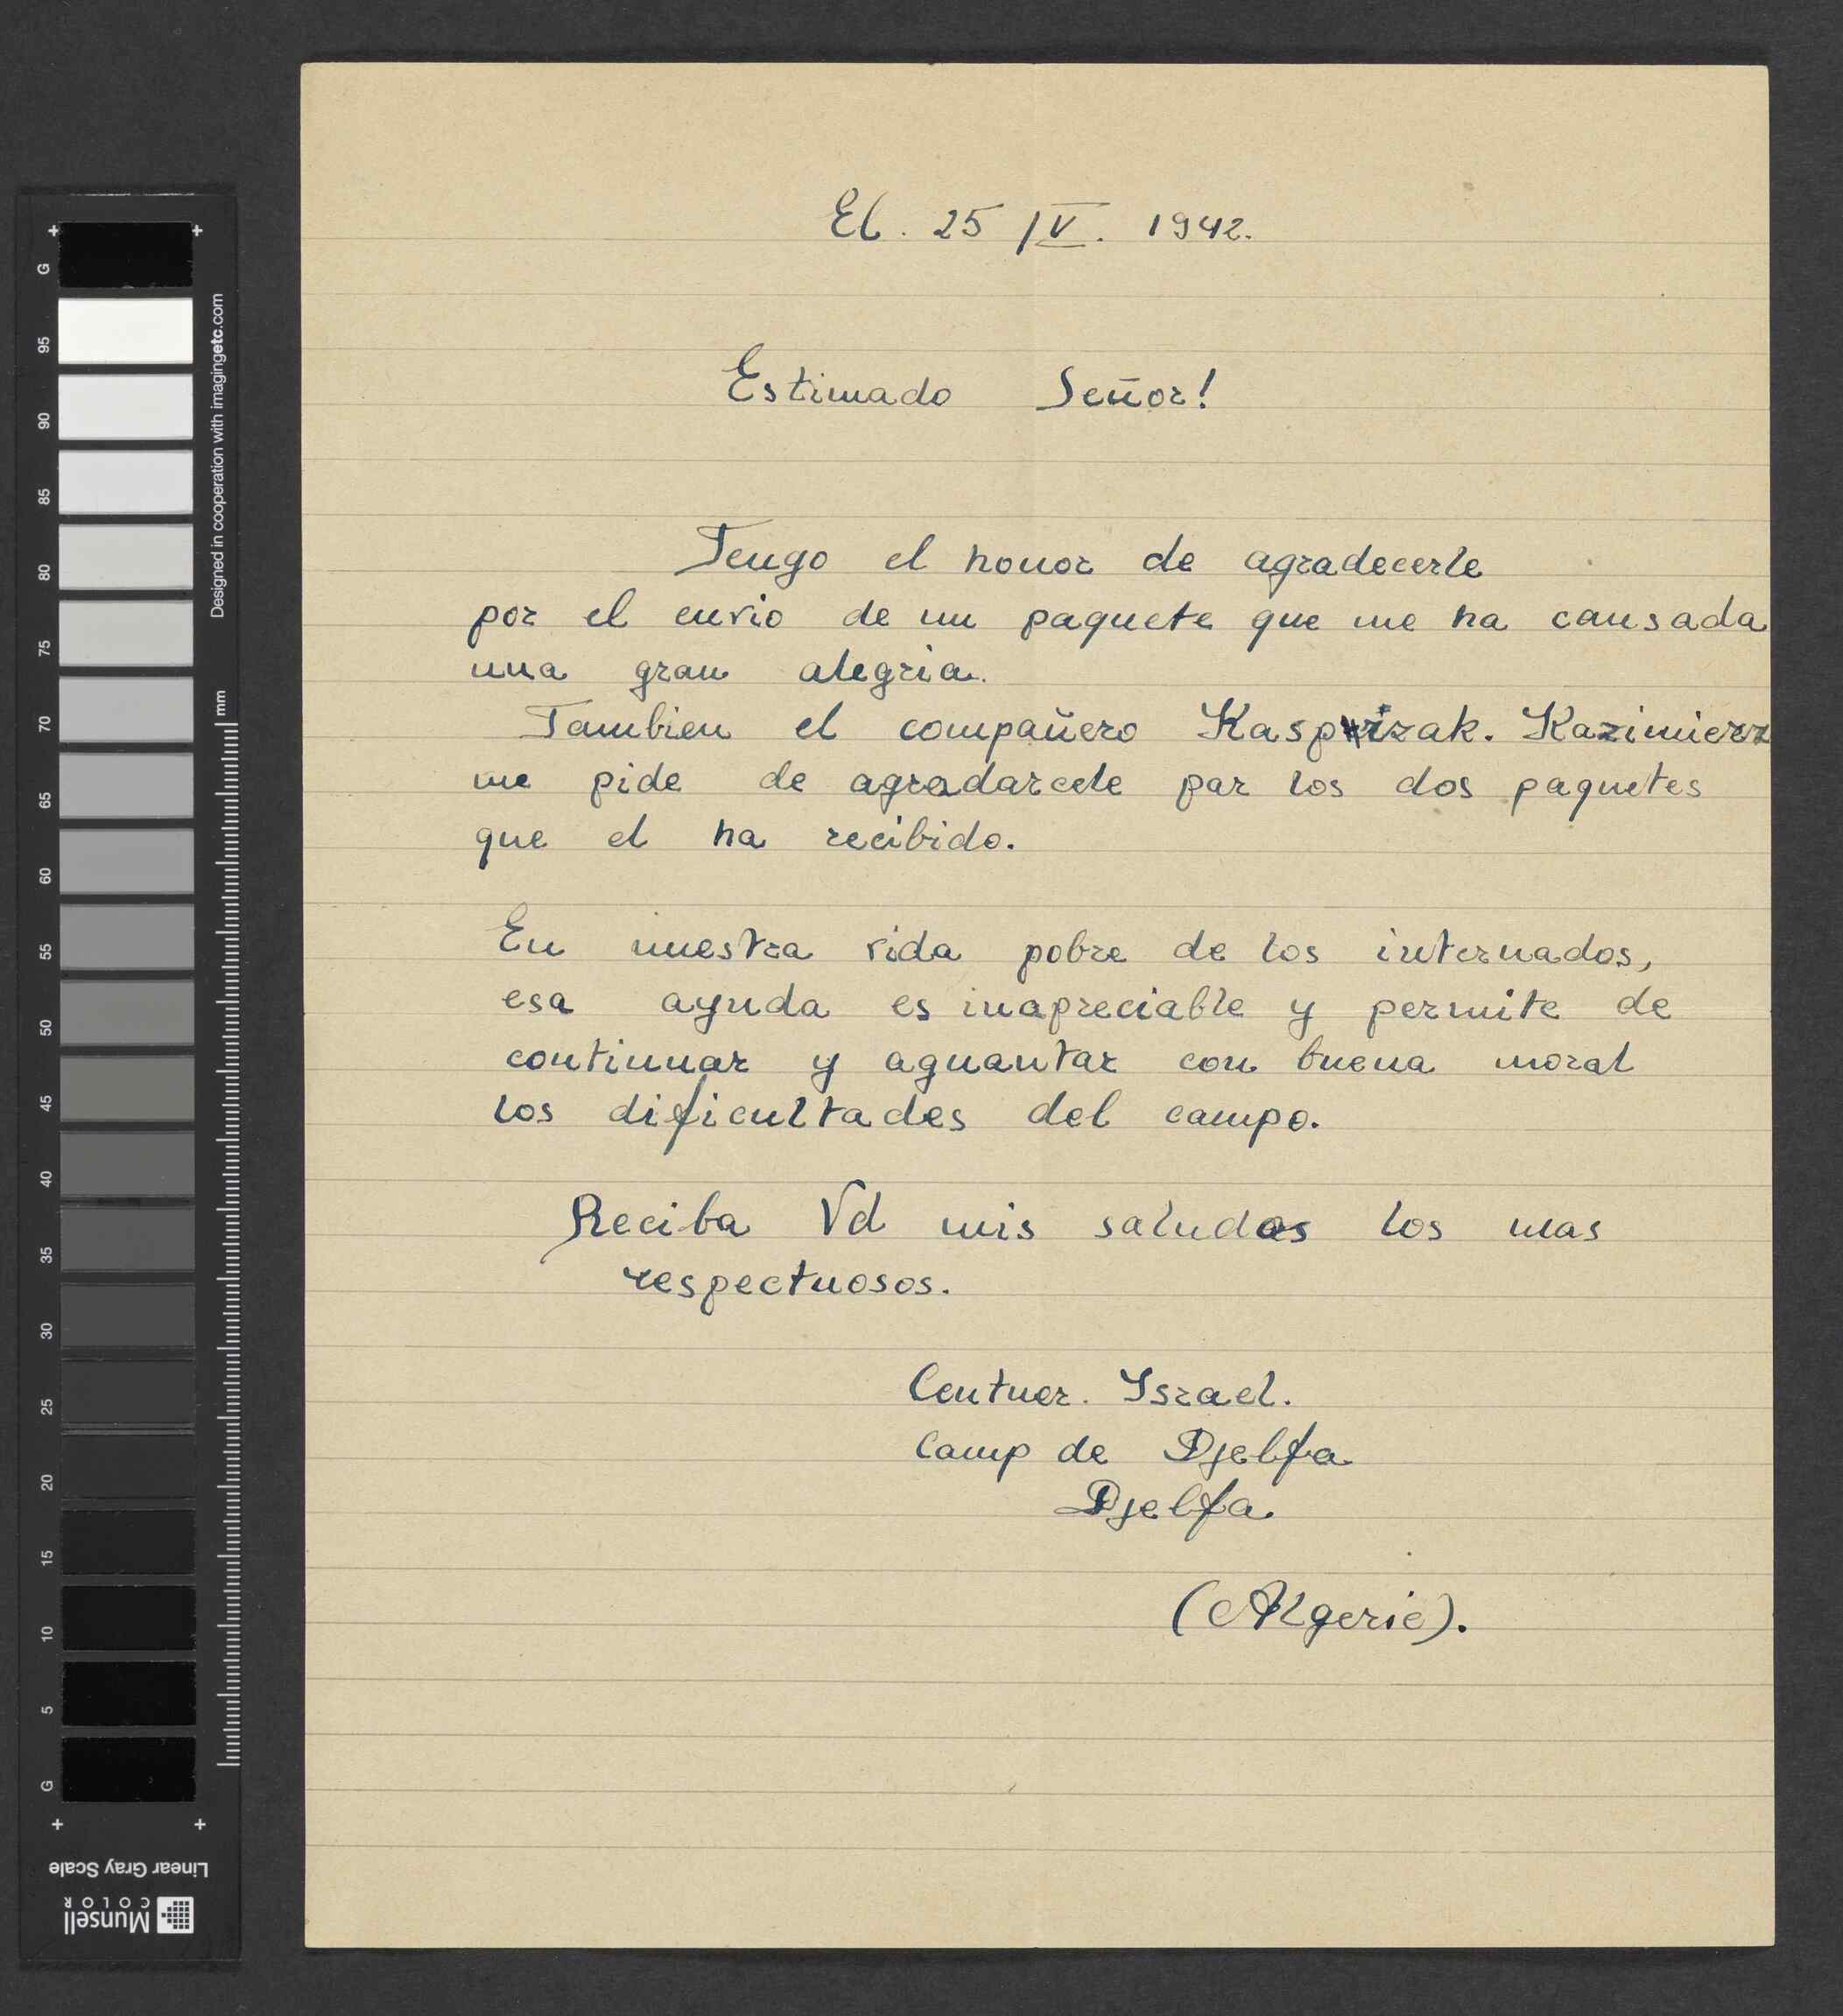 El. 25 IV. 1942.
Estimado Señor!
Tengo el honor de agradecerle
por el envio de un paquete que me ha causada
una gran alegria.
Tambien el compañero Kasprizak. Kazimierz
me pide de agradarcele par los dos paquetes
que el ha recibido.
En nuestra vida pobre de los internados,
esa ayuda es inapreciable y permite de
continuar y aguantar con buena moral
los dificultades del campo.
Reciba Vd mis saludos los mas
respectuosos.
Centner. Israel.
Camp de Djelfa
Djelfa.
(Algerie).
G
95
90
85
80
75
70
65
60
55
50
45
40
35
30
25
20
15
10
5
G
mm
Designed in cooperation with imagingetc.com
Linear Gray Scale
Munsell
COLOR